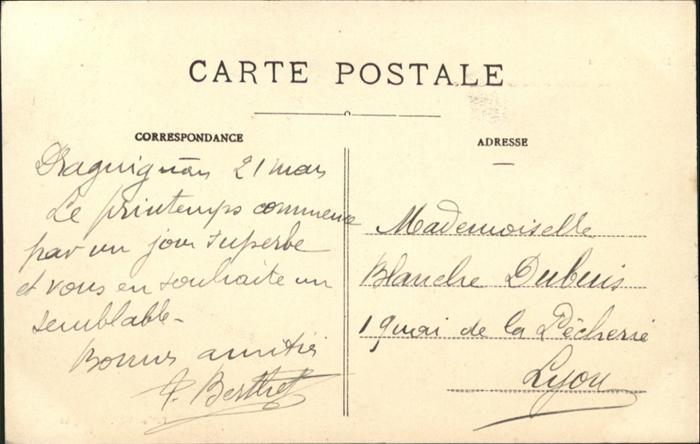 CARTE POSTALE
CORRESPONDANCE
Draguignan 21 mars
Le printemps commence
par un jour superbe
et vous en souhaite un
semblable-
Bonnes amitiés
P. Berthet
ADRESSE
Mademoiselle
Blanche Dubuis
1 quai de la Pêcherie
Lyon